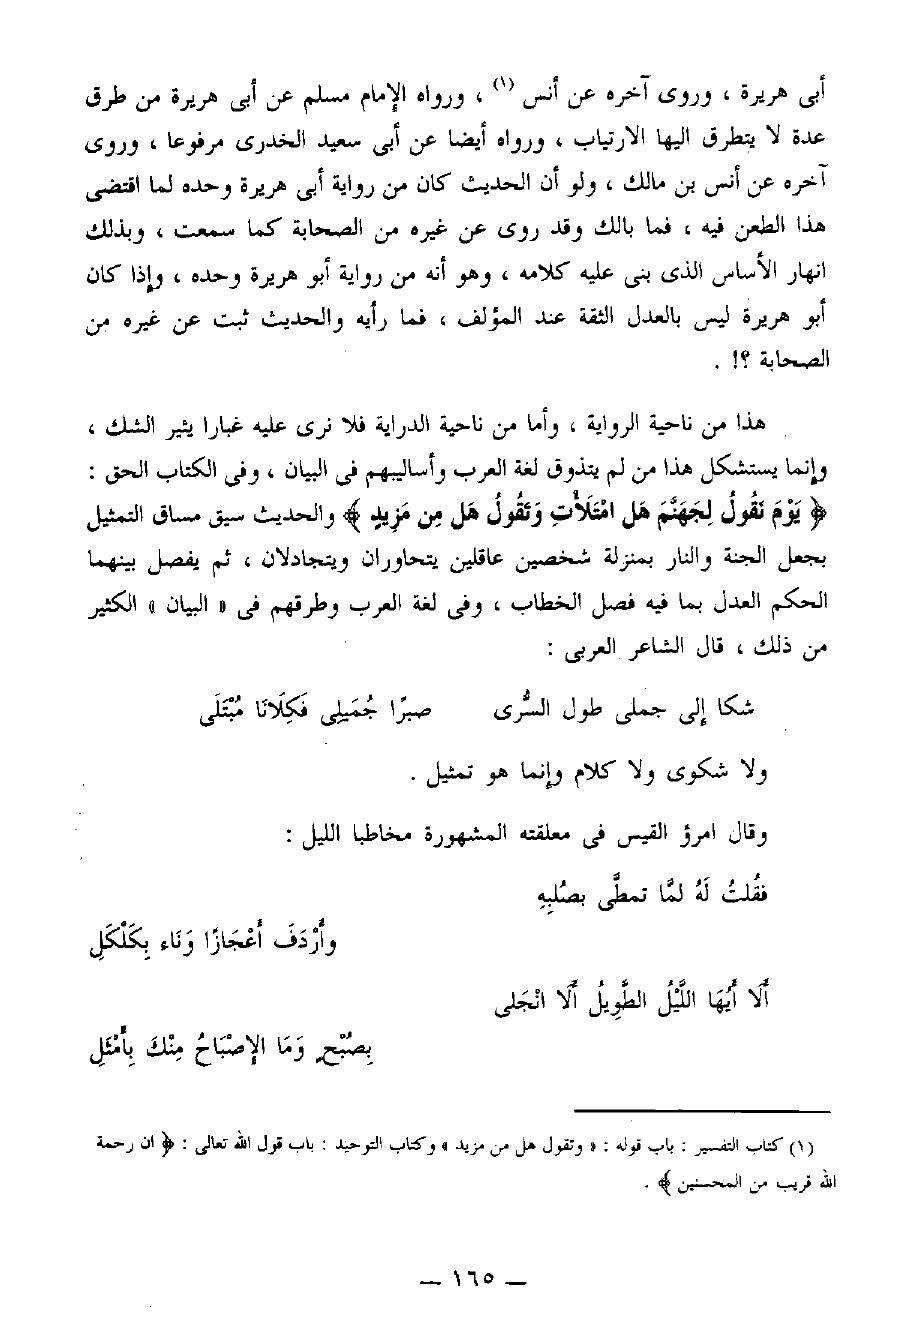 أبى هريرة ، وروى آخره عن أنس (١) ، ورواه الإمام مسلم عن أبى هريرة من طرق
عدة لا يتطرق اليها الارتياب ، ورواه أيضا عن أبى سعيد الخدرى مرفوعا ، وروى
آخره عن أنس بن مالك ، ولو أن الحديث كان من رواية أبى هريرة وحده لما اقتضى
هذا الطعن فيه ، فما بالك وقد روى عن غيره من الصحابة كما سمعت ، وبذلك
انهار الأساس الذى بنى عليه كلامه ، وهو أنه من رواية أبو هريرة وحده ، وإذا كان
أبو هريرة ليس بالعدل الثقة عند المؤلف ، فما رأيه والحديث ثبت عن غيره من
الصحابة ؟! .
هذا من ناحية الرواية ، وأما من ناحية الدراية فلا نرى عليه غبارا يثير الشك ،
وإنما يستشكل هذا من لم يتذوق لغة العرب وأساليبهم فى البيان ، وفى الكتاب الحق :
﴿ يَوْمَ نَقُولُ لِجَهَنَّمَ هَلِ امْتَلَأْتِ وَتَقُولُ هَلْ مِن مَزِيدٍ ﴾ والحديث سيق مساق التمثيل
بجعل الجنة والنار بمنزلة شخصين عاقلين يتحاوران ويتجادلان ، ثم يفصل بينهما
الحكم العدل بما فيه فصل الخطاب ، وفى لغة العرب وطرقهم فى « البيان » الكثير
من ذلك ، قال الشاعر العربى :
شكا إلى جملى طول السُّرى صبرًا جُمَيلِى فَكِلَانَا مُبْتَلَى
ولا شكوى ولا كلام وإنما هو تمثيل .
وقال امرؤ القيس فى معلقته المشهورة مخاطبا الليل :
فقُلتُ لَهُ لمَّا تمطَّى بصُلبِهِ
وأَرْدَفَ أَعْجَازًا وَنَاء بِكَلْكَلِ
أَلَا أَيُهَا اللَّيْلُ الطَّوِيلُ أَلَا انْجَلى
بِصُبْحٍ وَمَا الإصْبَاحُ مِنْكَ بِأَمْثَلِ
(١) كتاب التفسير : باب قوله : « وتقول هل من مزيد » وكتاب التوحيد : باب قول الله تعالى : ﴿ ان رحمة
الله قريب من المحسنين ﴾ .
— ١٦٥ —